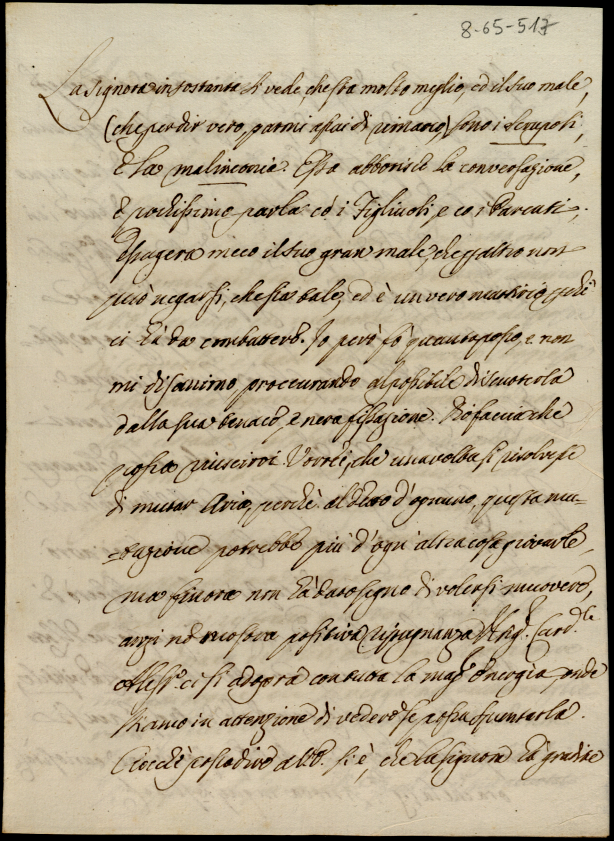 8-65-517
La Signora in sostanza si vede, che sta molto meglio, ed il suo male,
(che per dir vero, parmi assai di rimarco) sono i scrupoli,
e la malinconia. Essa abborisce la conversazione,
e pochissimo parla co' i Figliuoli, e co' i Parenti;
Esagera meco il suo gran male, che per altro non
può negarsi, che sia tale, ed è un vero martirio per chi
ci hà da combattere. Io però fò quanto posso, e non
mi disanimo proccurando al possibile di scuoterla
dalla sua tenace, e nera fissazione. Dio faccia che
possa riuscirvi. Vorrei, che una volta si risolvesse
di mutar Aria, perchè al detto d'ognuno, questa mu-
=tazione potrebbe più d'ogn'altra cosa giovarle,
ma finora non hà dato segno di volersi muovere,
anzi ne mostra positiva ripugnanza. Il Sig.r Card.le
Aless.o ci si adopra con tutta la mag.r energia, onde
stiamo in attenzione di vedere se possa spuntarla.
Ciocchè posso dire a si è, che la Signora hà gradite